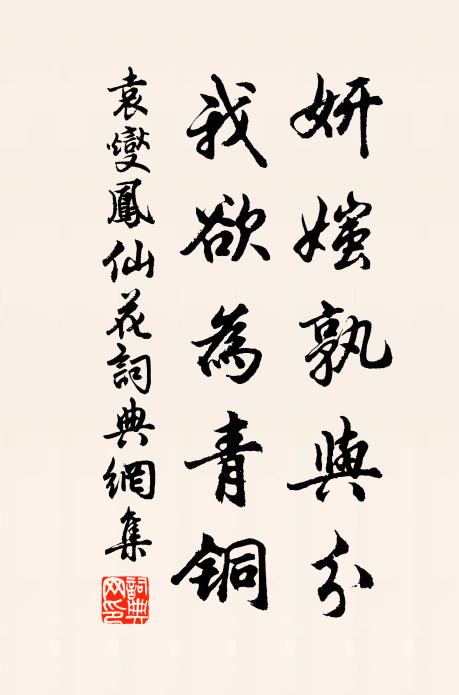 妍媸孰與分
我欲為青铜
袁燮鳳仙花詞典網集
詞典网印